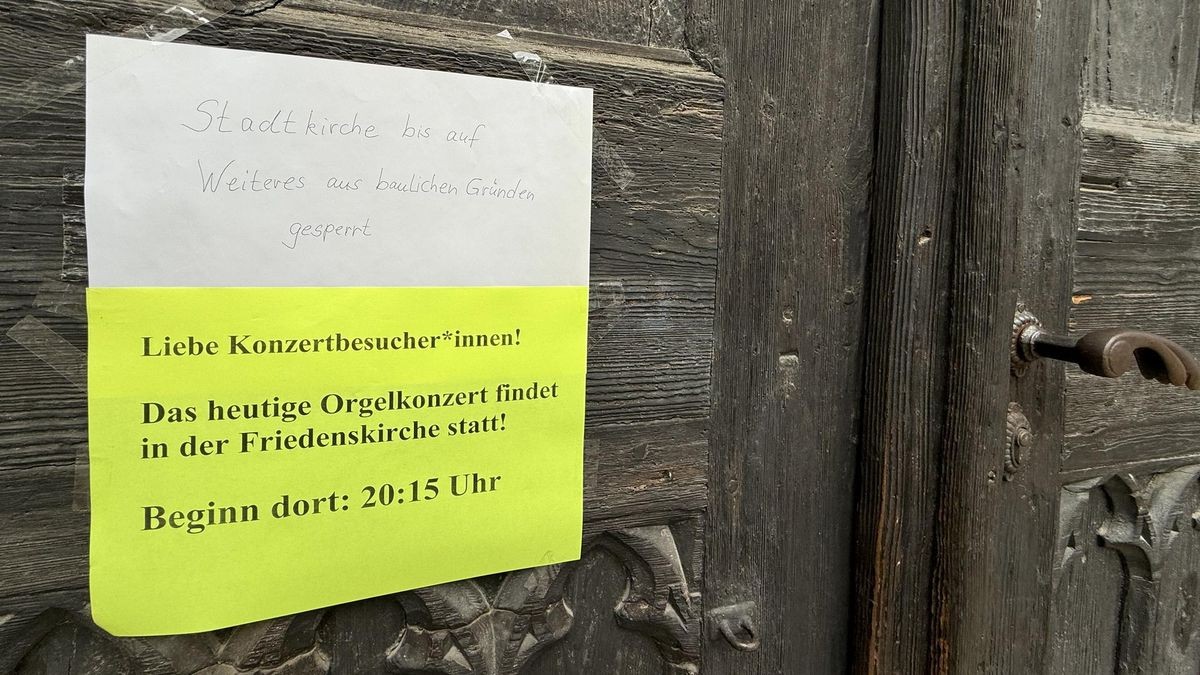 Stadtkirche bis auf
Weiteres aus baulichen Gründen
gesperrt
Liebe Konzertbesucher*innen!
Das heutige Orgelkonzert findet
in der Friedenskirche statt!
Beginn dort: 20:15 Uhr